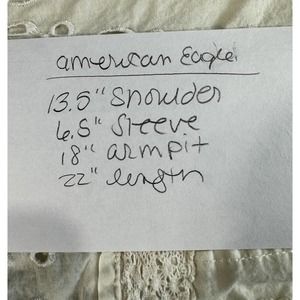 american Eagle
13.5" shoulder
6.5" sleeve
18" armpit
22" length